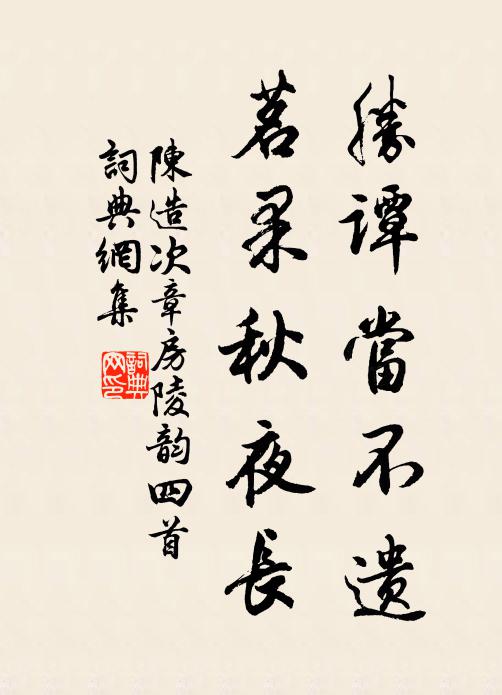 勝譚當不遺
茗果秋夜長
陳造次章房陵韵四首
詞典網集
詞典网印